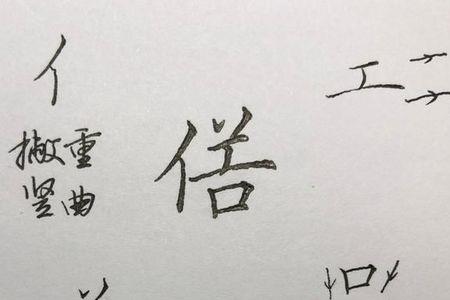 亻
工
撇重
竖曲
倍
口